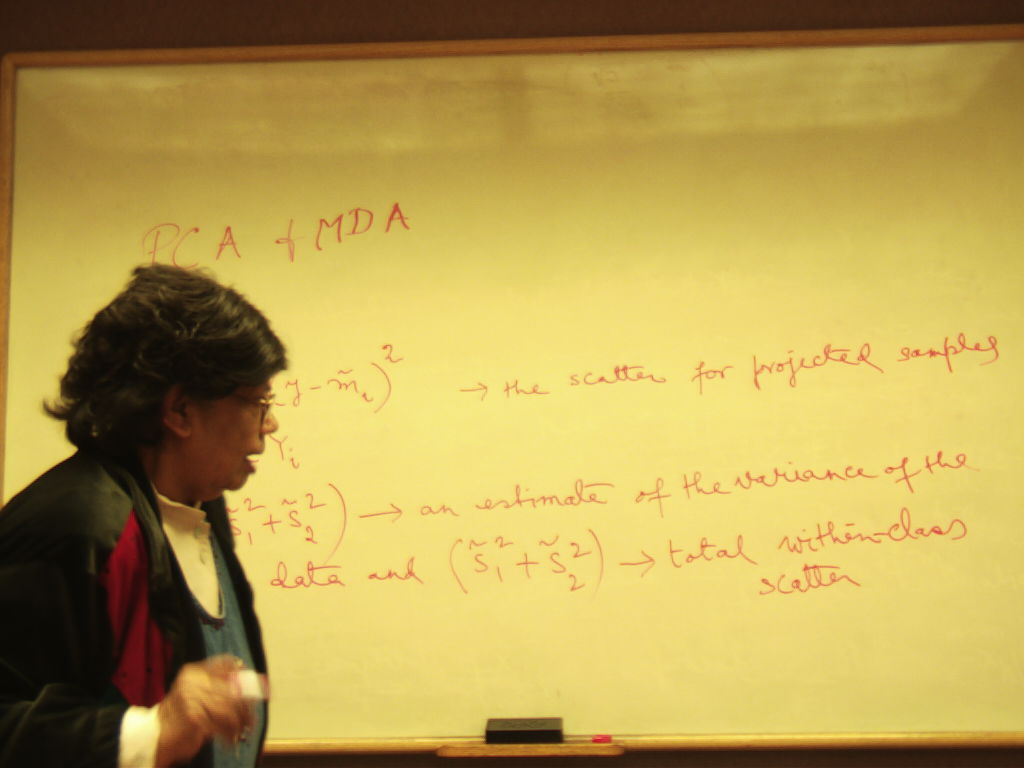 PCA & MDA
y - m̃ᵢ)² → the scatter for projected samples
Yᵢ
s̃₁² + s̃₂²) → an estimate of the variance of the
data and (s̃₁² + s̃₂²) → total within-class
scatter